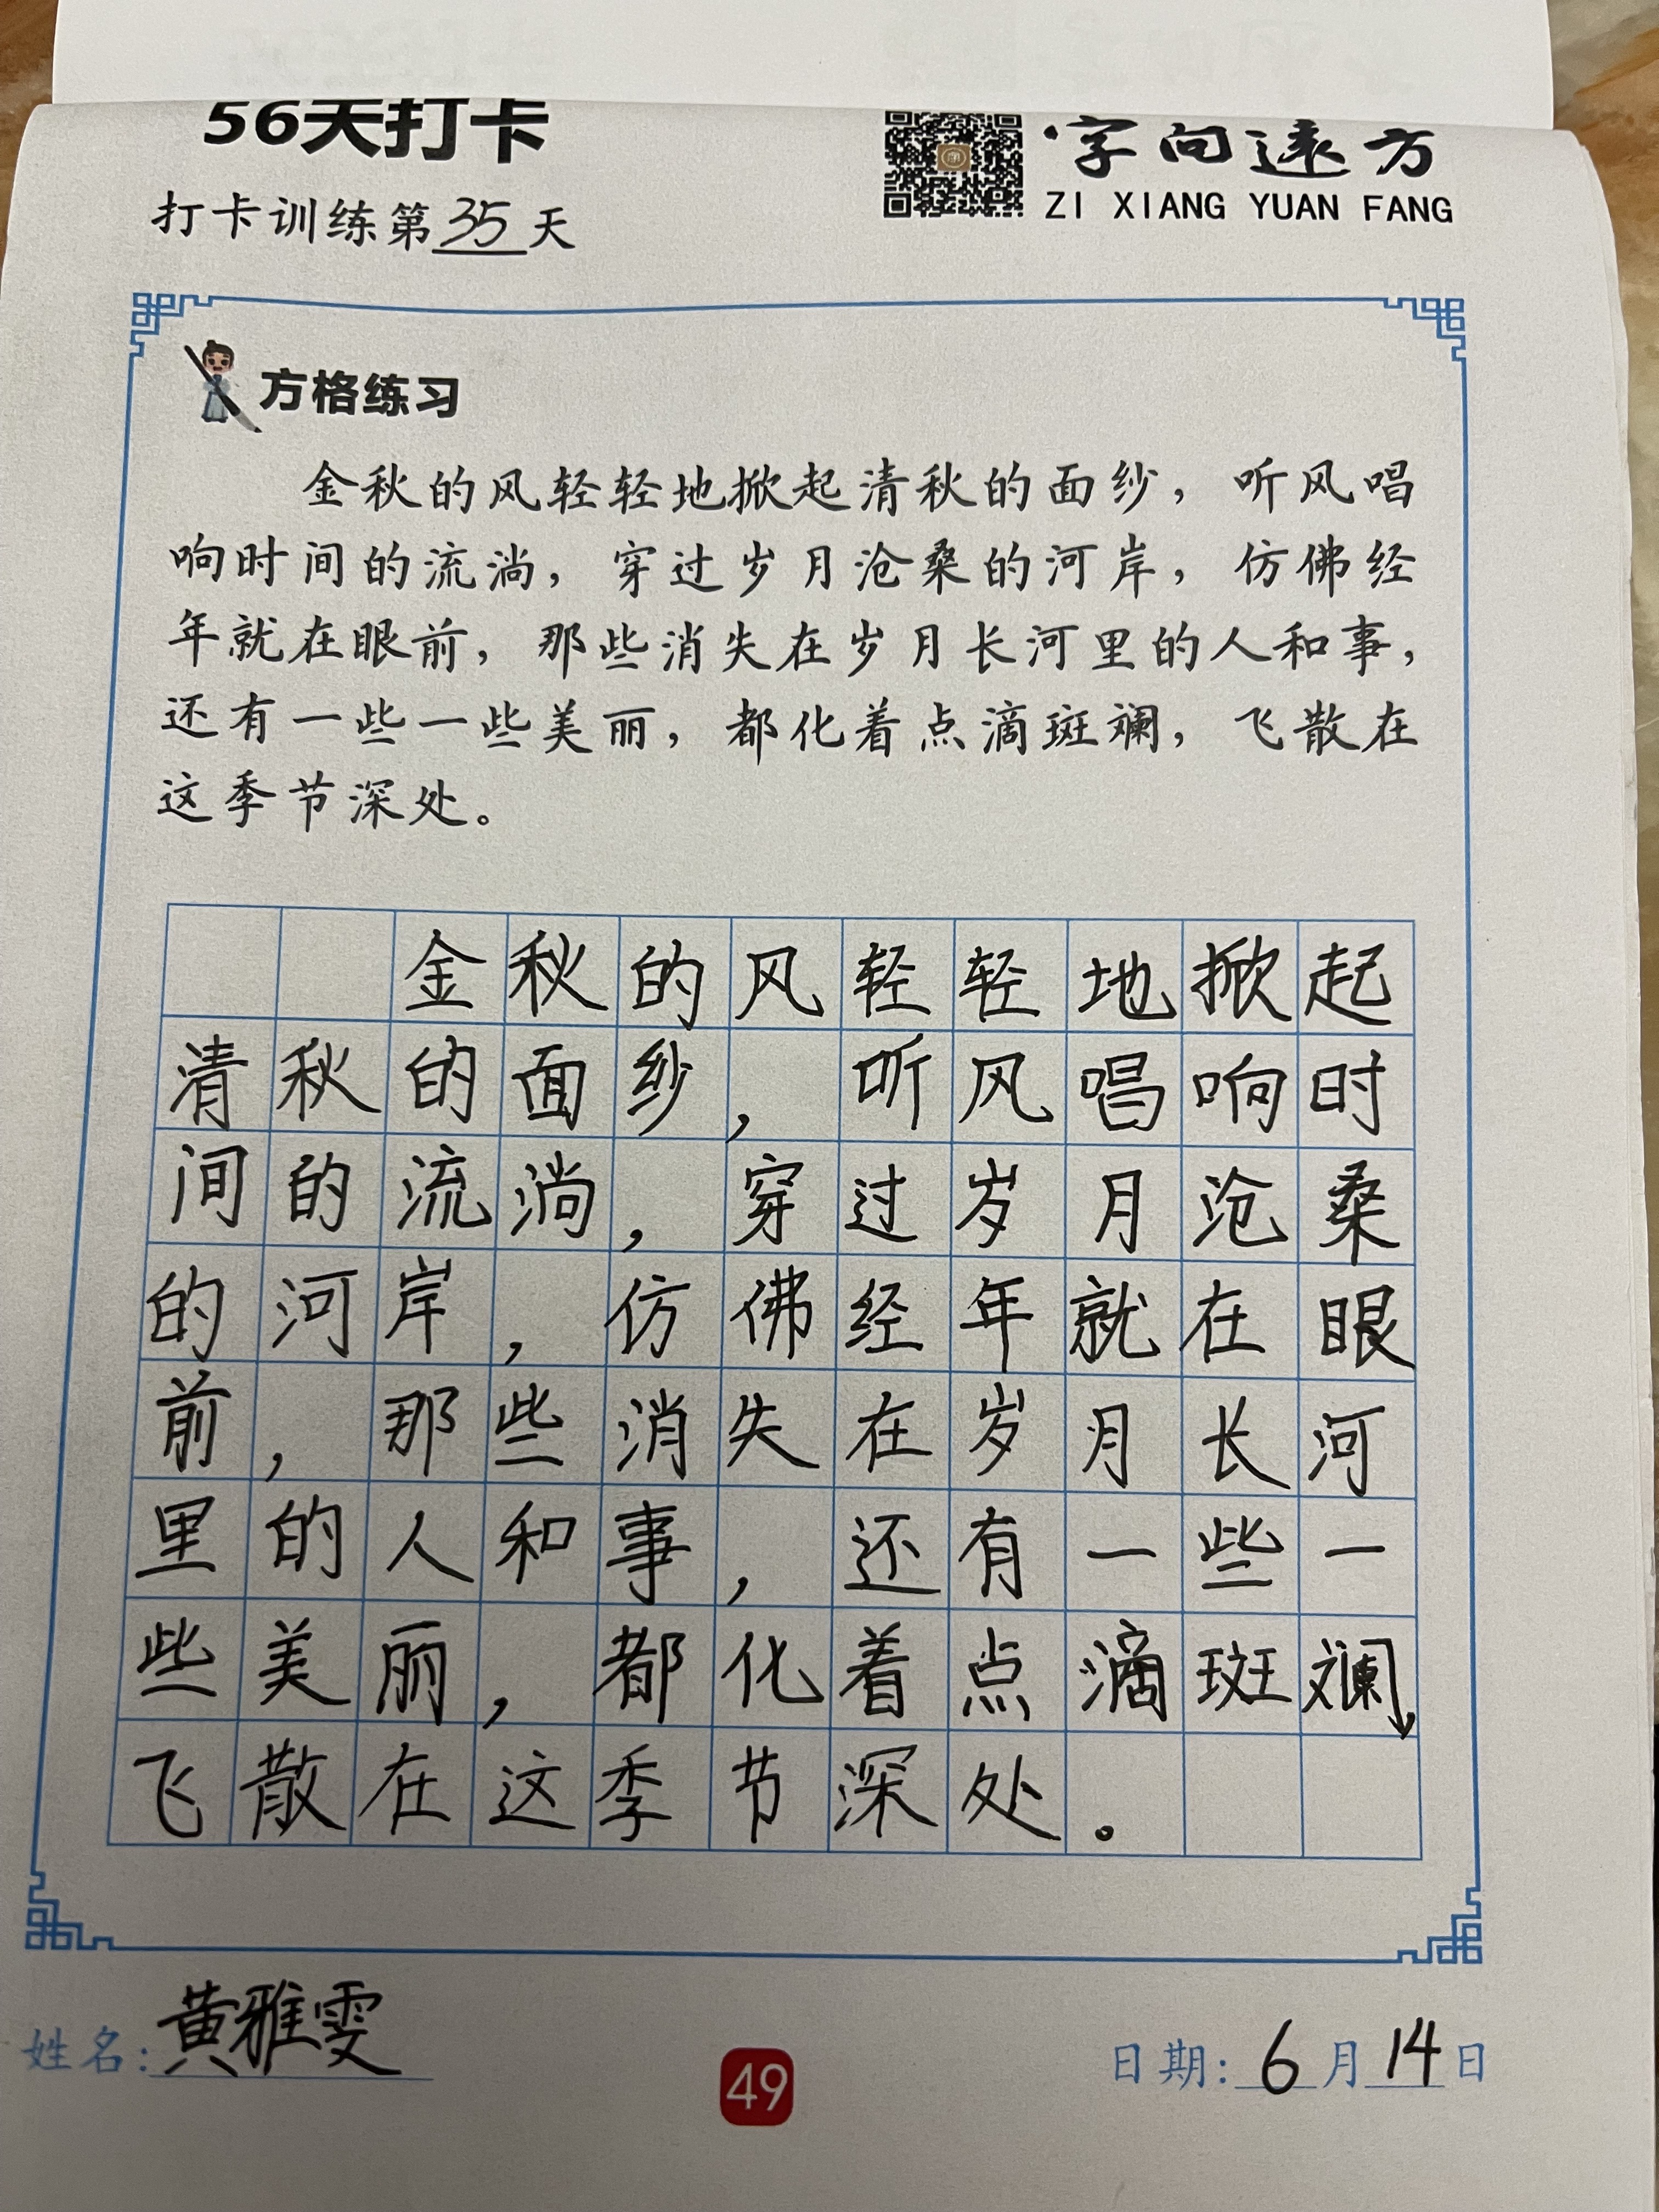 56天打卡
字向远方
ZI XIANG YUAN FANG
打卡训练第35天
方格练习
金秋的风轻轻地掀起清秋的面纱，听风唱
响时间的流淌，穿过岁月沧桑的河岸，仿佛经
年就在眼前，那些消失在岁月长河里的人和事，
还有一些一些美丽，都化着点滴斑斓，飞散在
这季节深处。
金秋的风轻轻地掀起
清秋的面纱，听风唱响时
间的流淌，穿过岁月沧桑
的河岸，仿佛经年就在眼
前，那些消失在岁月长河
里的人和事，还有一些一
些美丽，都化着点滴斑斓，
飞散在这季节深处。
姓名：黄雅雯
49
日期：6月14日